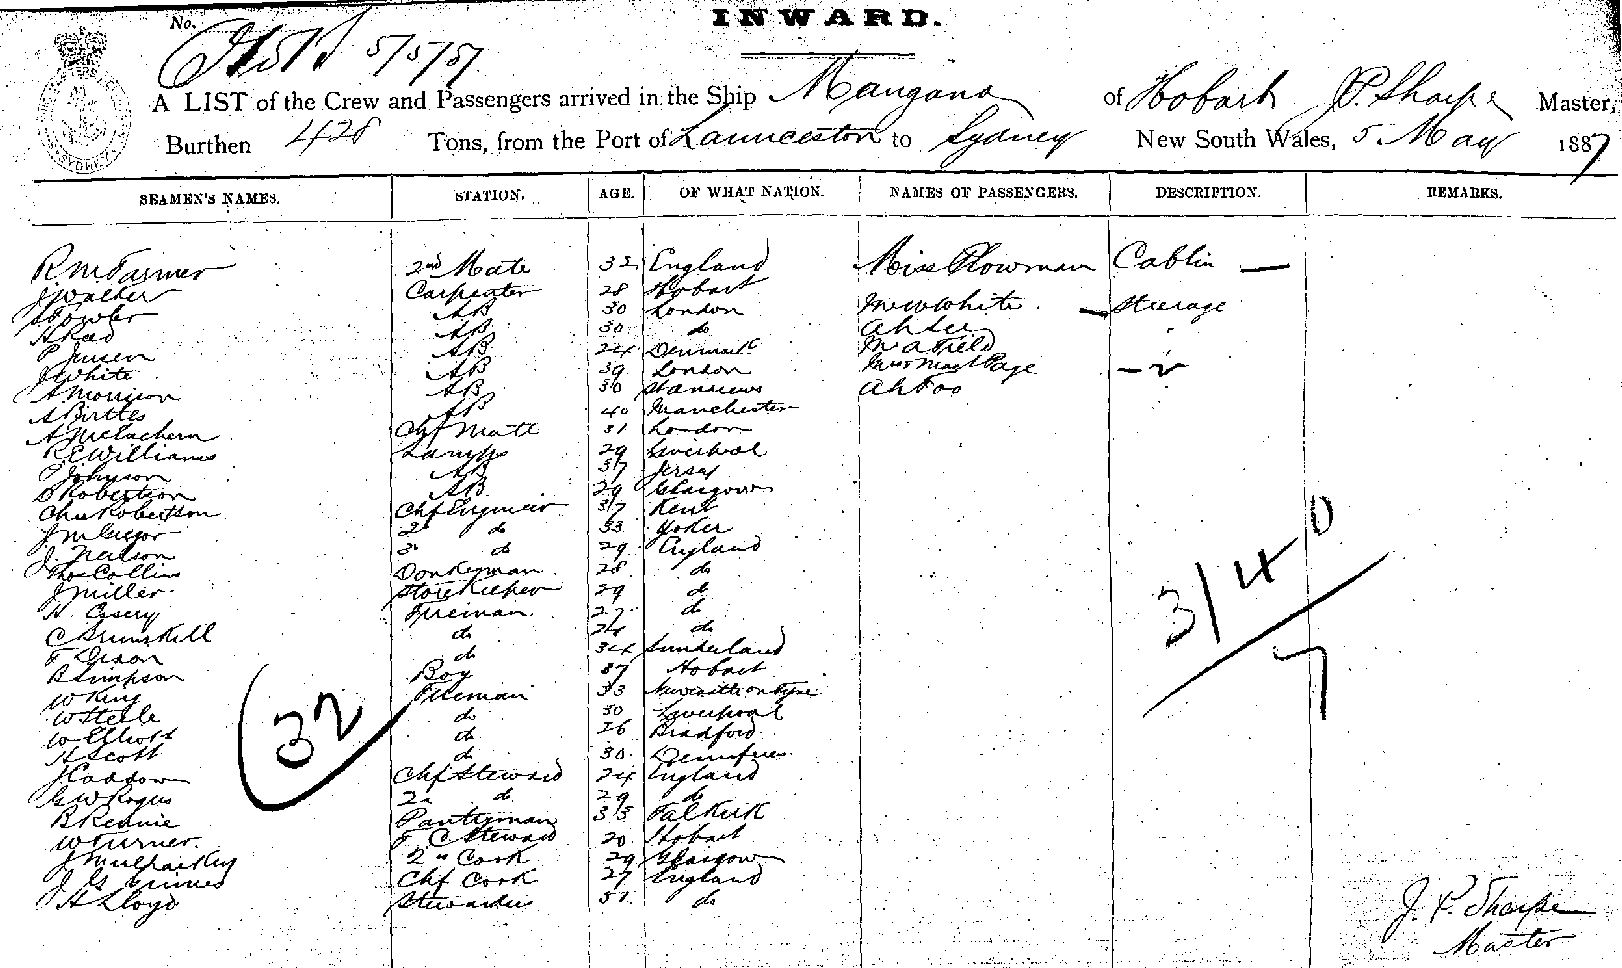 No.
INWARD.
5/5/87
A LIST of the Crew and Passengers arrived in the Ship Mangana of Hobart J P Sharpe Master,
Burthen 428 Tons, from the Port of Launceston to Sydney New South Wales, 5 May 1887
SEAMEN'S NAMES. STATION. AGE. OF WHAT NATION. NAMES OF PASSENGERS. DESCRIPTION. REMARKS.
R McFarmer 2nd Mate 32 England Miss Plowman Cabbin —
J Walker Carpenter 28 Hobart
S Fowler AB 30 London Mr W White — Steerage
H Read AB 30 do Ah Lee
P Jensen AB 24 Denmark Mr A Field
J White AB 39 London Page
A Morrison AB 30 St Andrews Ah Foo
A Birttes AB 40 Manchester
A McEachern Chf Mate 31 London
R E Williams Lamps 29 Liverpool
P Johnson AB 37 Jersey
D Robertson AB 29 Glasgow
Chas Robertson Chf Engineer 37 Kent
J McGregor 2 do 33 Yoker
J. Neilson 3 do 29 England
Thos Collins Donkeyman 28 do
J Miller Storekeeper 29 do
H. Casey Fireman 27 do
C Brunskill do 24 do
F Dixon do 34 Sunderland
B Simpson Boy 37 Hobart
W King Fireman 33 Newcastle on Tyne
W Steele do 30 Liverpool
W Elliott do 26 Bradford
H Scott do 30 Dumfries
J Caddow Chf Steward 24 England
G W Rogers 2nd do 29 do
B Rennie Pantryman 33 Falkirk
W Turner F C Steward 20 Hobart
J Mulharkey 2nd Cook 29 Glasgow
J G Grimes Chf Cook 27 England
A Lloyd Stewardess 51 do
32
3/4 0
7
J. P. Sharpe
Master